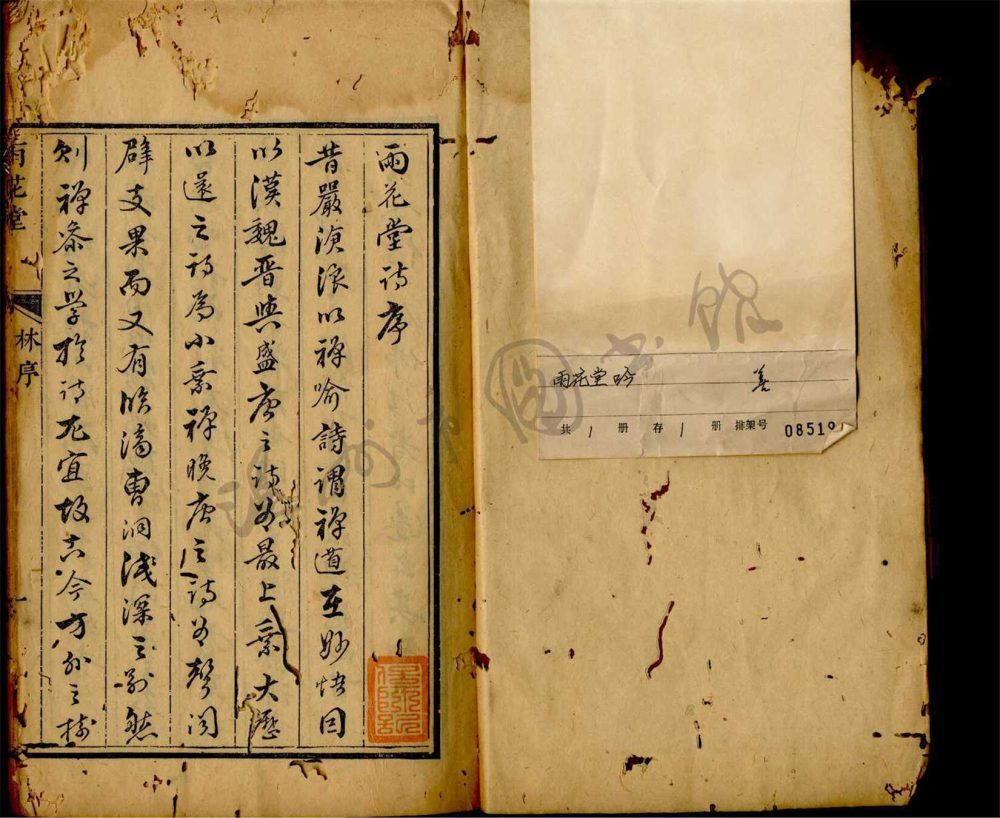 雨花堂吟 善
共 1 册 存 1 册 排架号 08519
温州市圖書館
雨花堂詩序
昔嚴滄浪以禅喻詩謂禅道在妙悟因
以漢魏晋與盛唐之詩為最上乘大歷
以還之詩為小乘禅晚唐之詩為聲聞
辟支果而又有臨濟曹洞淺深之別然
則禅參之學於詩尤宜故古今方外之
雨花堂
林序
一